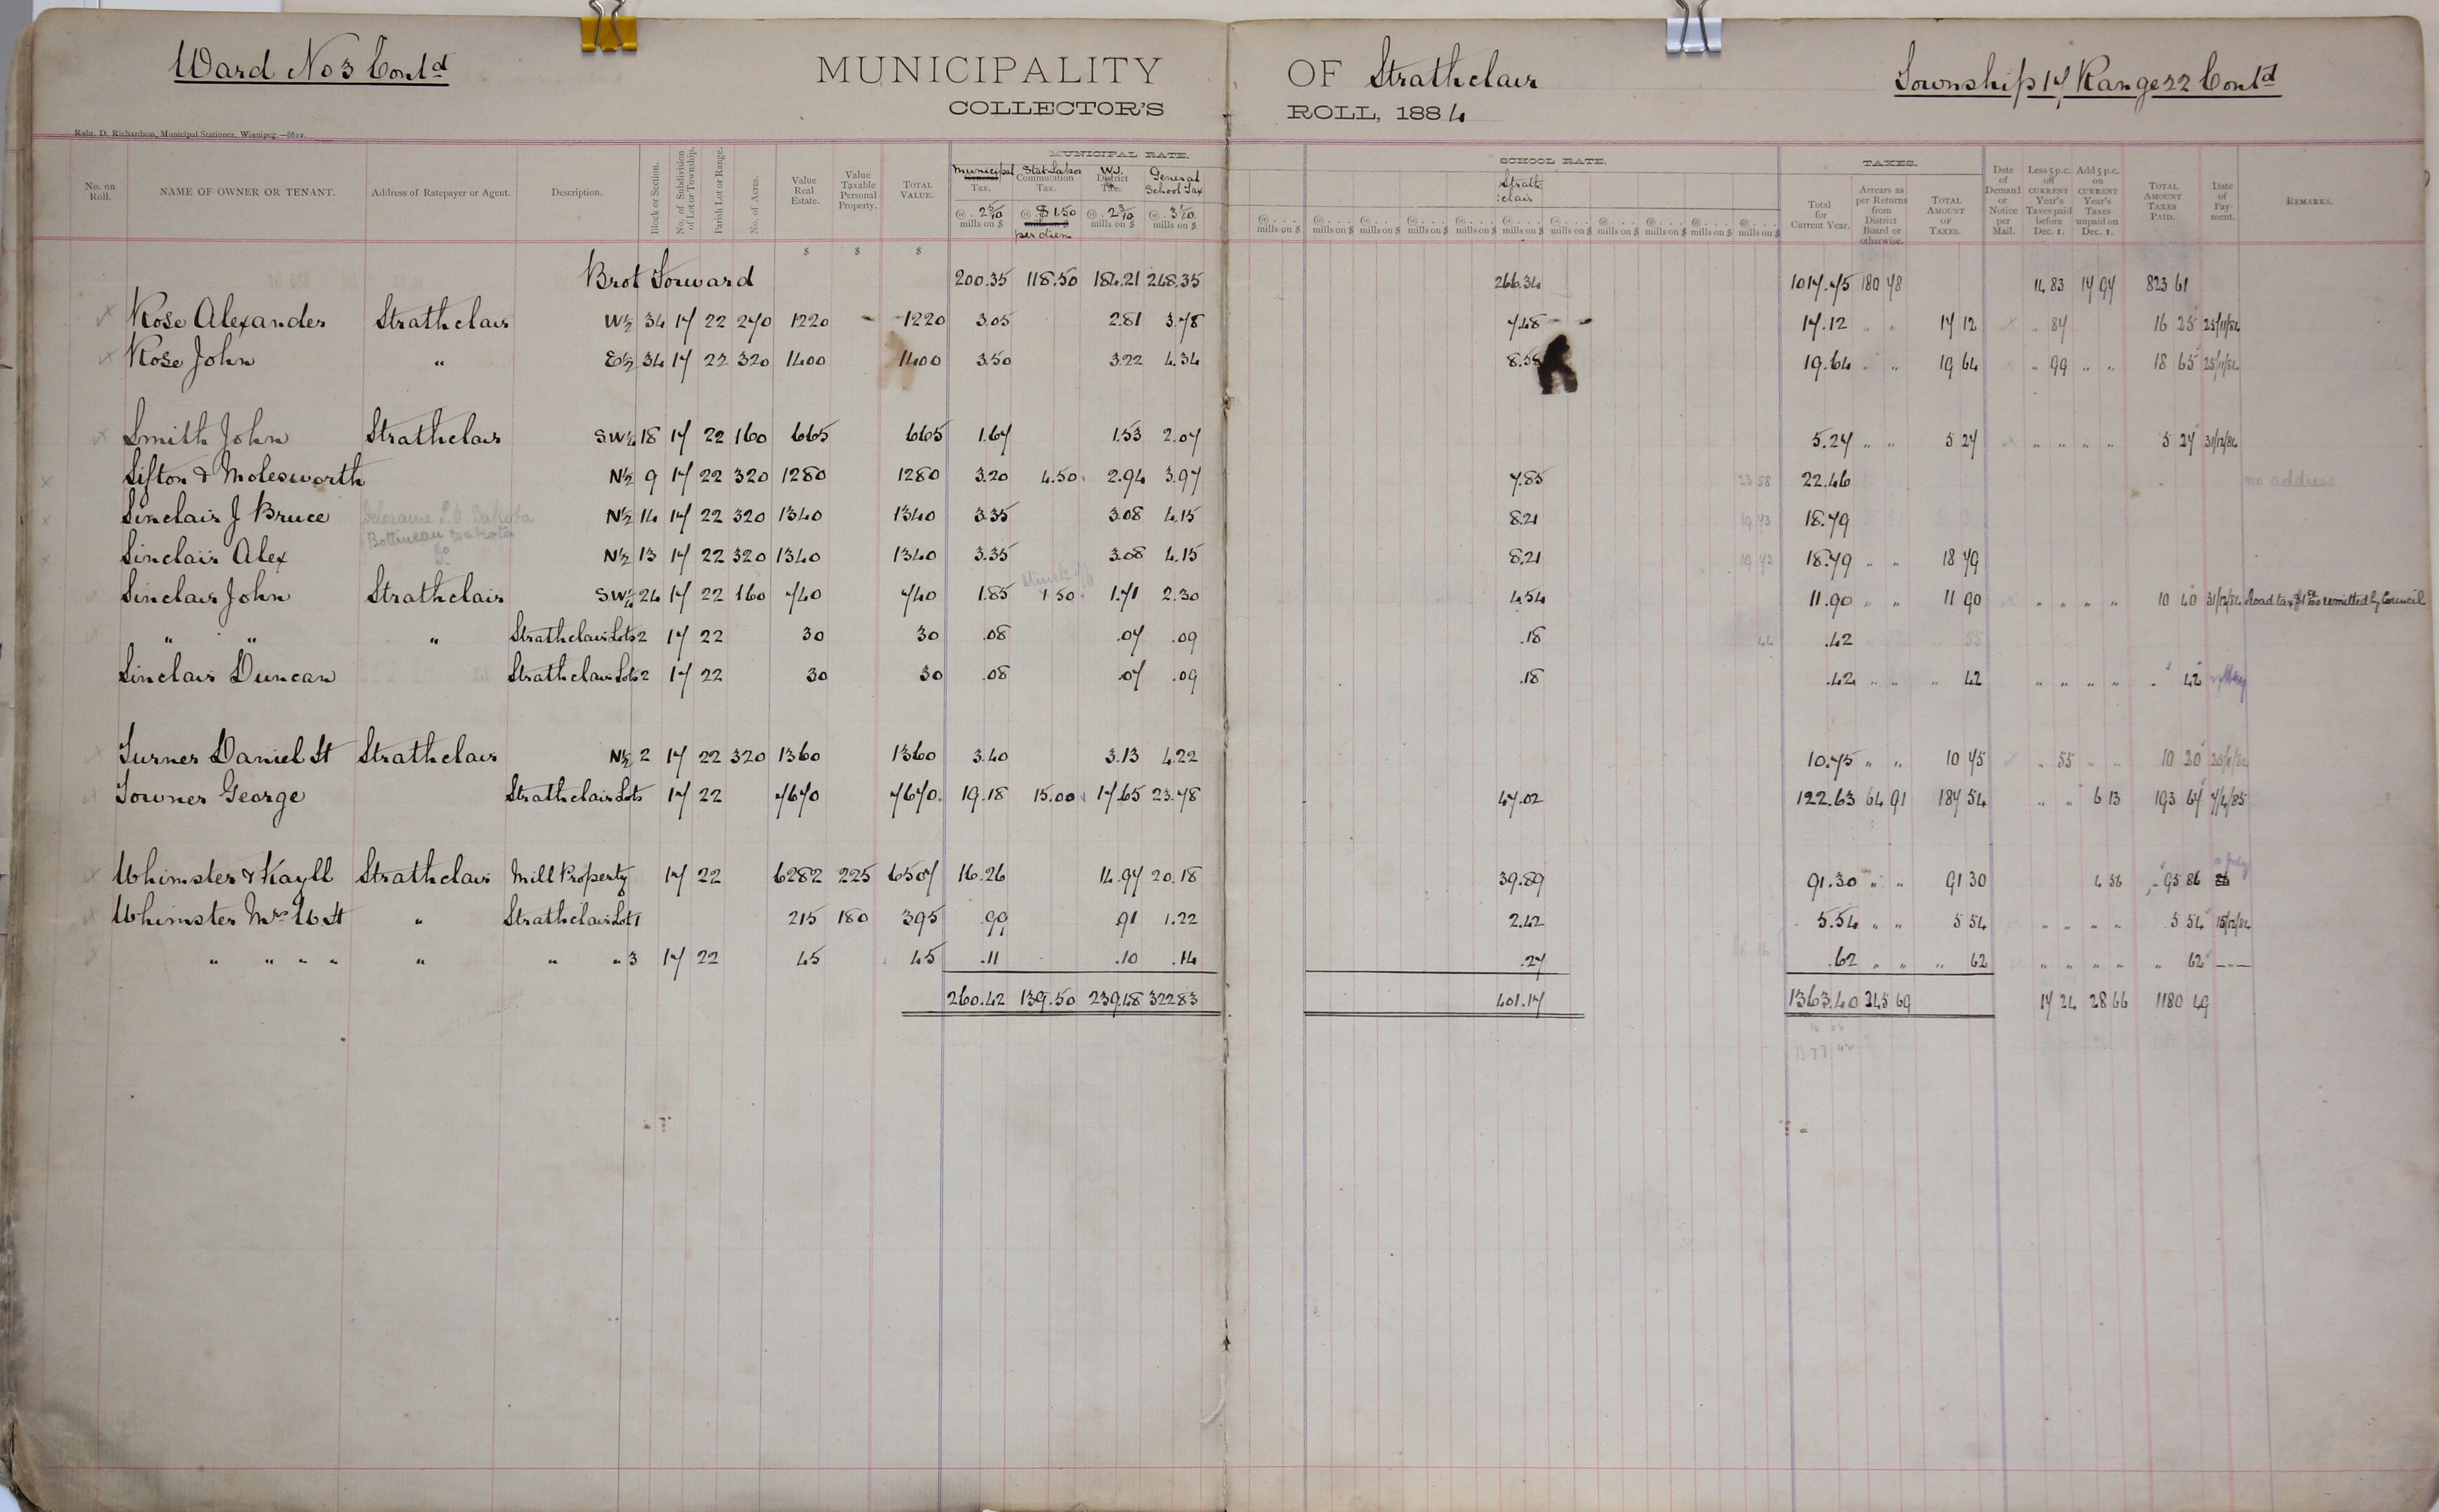 Ward No 3 Cont'd MUNICIPALITY OF Strathclair Township 17 Range 22 Cont'd
COLLECTOR'S ROLL, 1884
Robt. D. Richardson, Municipal Stationer, Winnipeg.—8622.
No. on Roll. NAME OF OWNER OR TENANT. Address of Ratepayer or Agent. Description. Block or Section. No. of Subdivision of Lot or Township. Parish Lot or Range. No. of Acres. Value Real Estate. Value Taxable Personal Property. TOTAL VALUE. MUNICIPAL RATE. Municipal General Tax. @ 2 5/10 mills on $ Stat Labor Commutation Tax. @ $1.50 mills on $ per diem W.J. District Tax. @ 2 3/10 mills on $ General School Tax @ 3 1/10 mills on $ SCHOOL RATE. Strathclair @.... mills on $ TAXES. Total for Current Year. Arrears as per Returns from District Board or otherwise. TOTAL AMOUNT OF TAXES. Date of Demand or Notice per Mail. Less 5 p.c. off CURRENT Year's Taxes paid before Dec. 1. Add 5 p.c. on CURRENT Year's Taxes unpaid on Dec. 1. TOTAL AMOUNT TAXES PAID. Date of Payment. REMARKS.
$ $ $
Brot Forward 200.35 118.50 184.21 248.35 266.34 1017.75 180 78 14 83 17 97 823 61
Rose Alexander Strathclair W½ 34 17 22 270 1220 - 1220 3.05 2.81 3.78 7.48 17.12 " " 17 12 " 87 16 25 25/11/84
Rose John " E½ 34 17 22 320 1400 1400 3.50 3.22 4.34 8.58 19.64 " " 19 64 " 99 " " 18 65 25/11/84
Smith John Strathclair S.W¼ 18 17 22 160 665 665 1.67 1.53 2.07 5.27 " " 5 27 " " " " 5 27 31/12/84
Sifton & Molesworth N½ 9 17 22 320 1280 1280 3.20 4.50 2.94 3.97 7.85 23 58 22.46 no address
Sinclair J Bruce Deloraine P.O Dakota N½ 14 17 22 320 1340 1340 3.35 3.08 4.15 8.21 19 73 18.79
Bottineau Dakota
Sinclair Alex do N½ 13 17 22 320 1340 1340 3.35 3.08 4.15 8.21 19 73 18.79 " " 18 79
Sinclair John Strathclair S.W¼ 24 17 22 160 740 740 1.85 struck off 1.50 1.71 2.30 4.54 11.90 " " 11 90 " " " " 10 40 31/12/84 Road tax $1.50 remitted by Council
" " " Strathclair Lots 2 17 22 30 30 .08 .07 .09 .18 44 .42
Sinclair Duncan Strathclair Lots 2 17 22 30 30 .08 .07 .09 .18 .42 " " " 42 " " " " " 42
Turner Daniel H Strathclair N½ 2 17 22 320 1360 1360 3.40 3.13 4.22 10.75 " " 10 75 " 55 " " 10 20
Towner George Strathclair Lots 17 22 7670 7670 19.18 15.00 17.65 23.78 47.02 122.63 64 91 187 54 " " 6 13 193 67 7/4/85
Whimster & Kayll Strathclair Mill Property 17 22 6282 225 6507 16.26 14.97 20.18 39.89 91.30 " " 91 30 4 56 95 86
Whimster Mrs W.H " Strathclair Lot 1 215 180 395 .99 .91 1.22 2.42 5.54 " " 5 54 " " " " 5 54 15/12/84
" " " " " " " 3 17 22 45 45 .11 .10 .14 .27 .62 " " " 62 " " " " " 62 ---
260.42 139.50 239.48 322.83 401.17 1363.40 245 69 17 24 28 66 1180 49